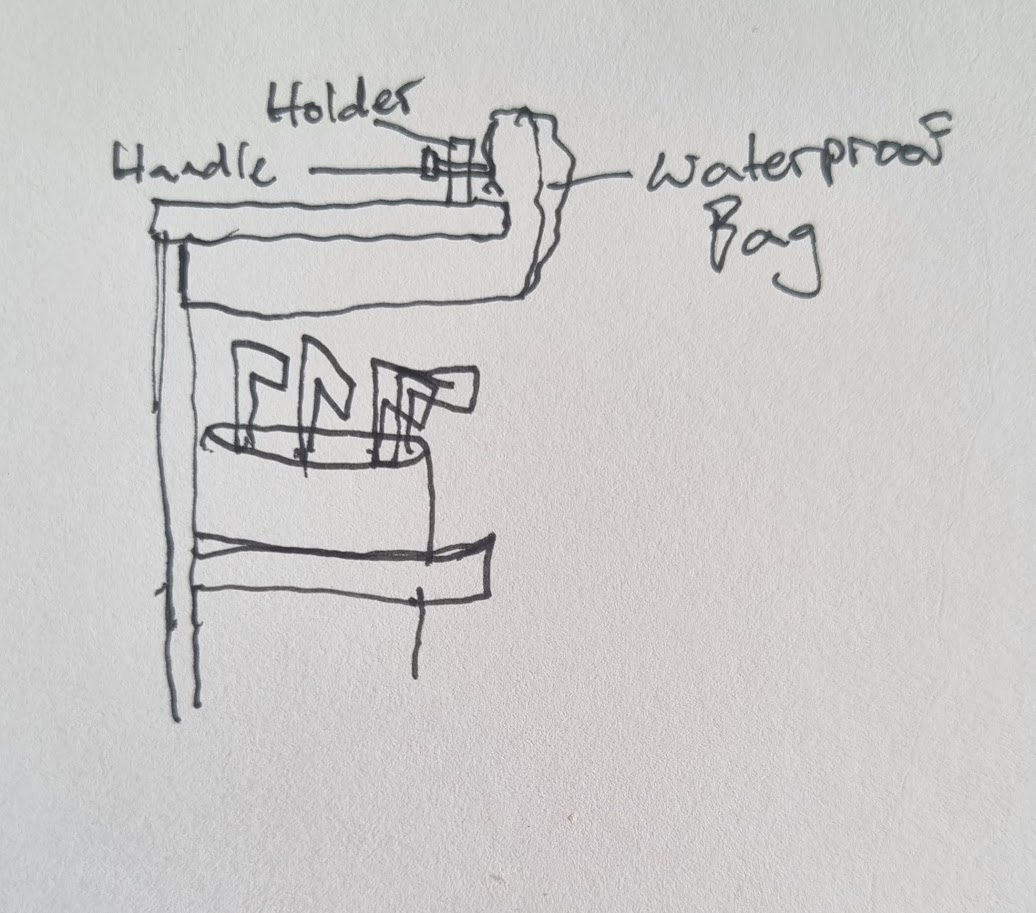 Holder
Handle
Waterproof
Bag